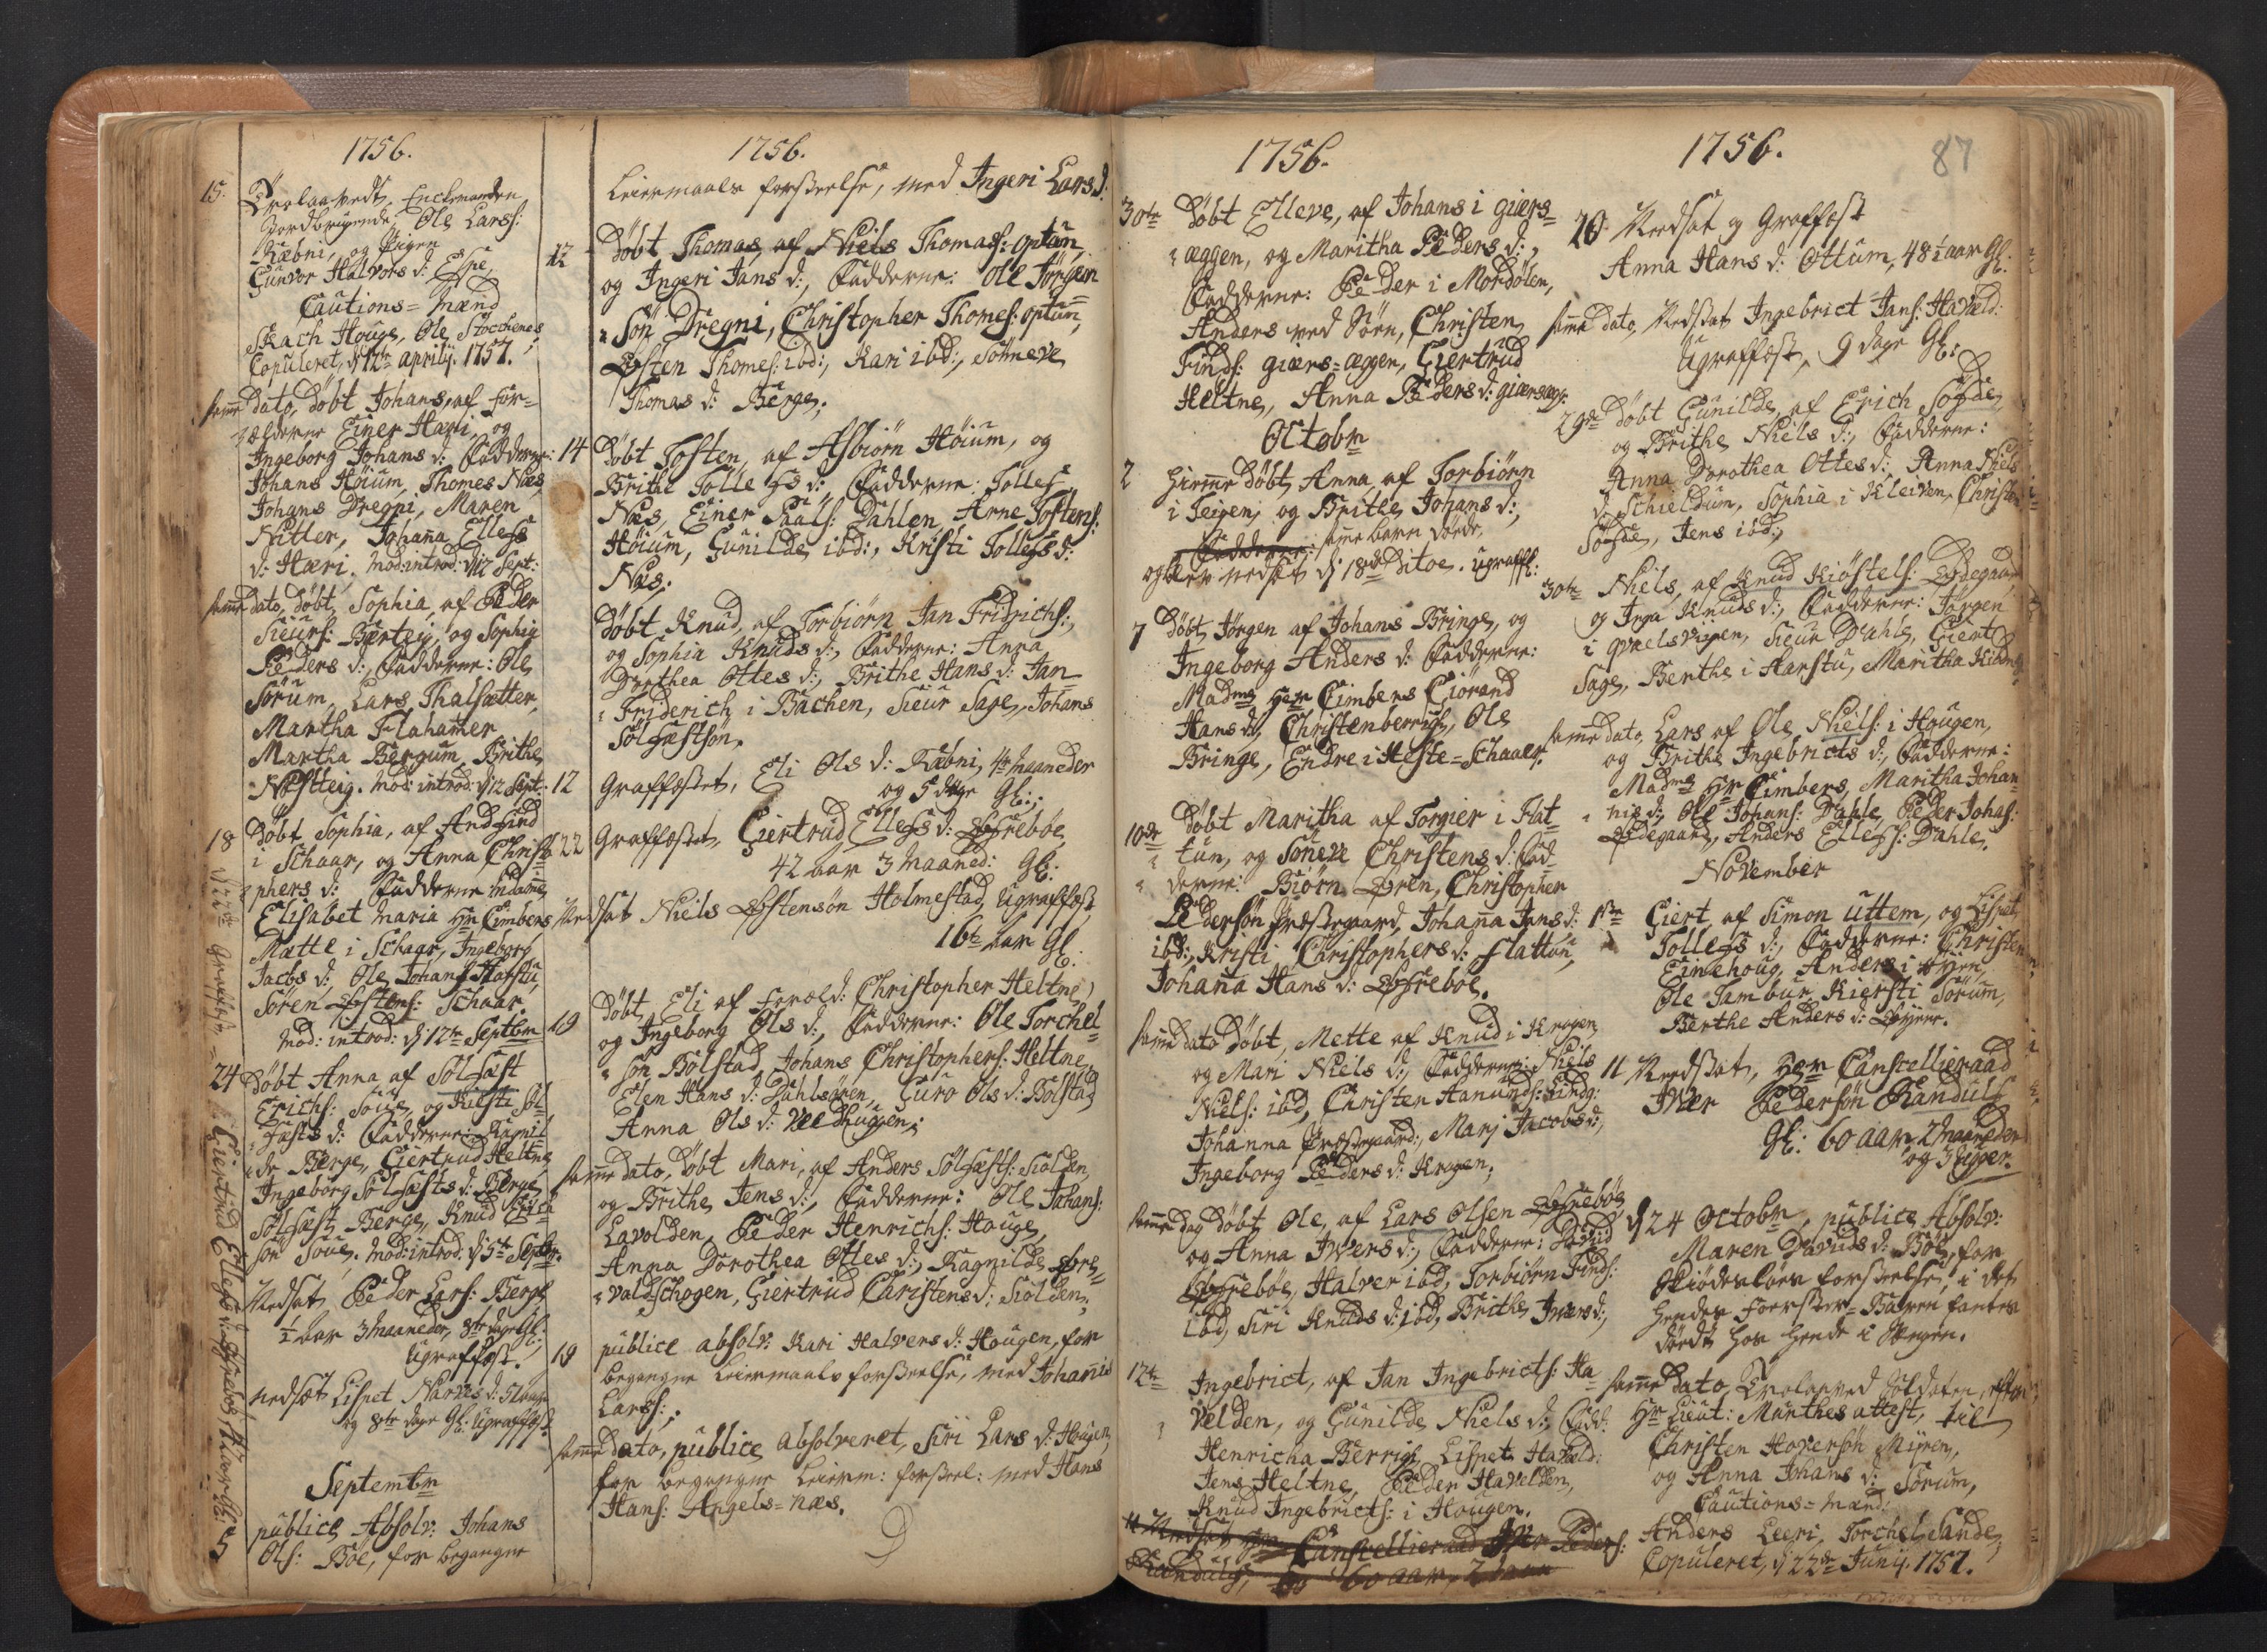 1756.
15. Trolaavedt, Enckemanden
Jordbrugende Ole Larss:
Ræbni, og Pigen
Gunvor Halvors d: Espe,
Cautions=Mænd
Skach Houge, Ole Stocchenes
Copuleret, d 12te aprilij. 1757.
samme dato, døbt Johans, af for=
ældrene Einer Hæri, og
Ingeborg Johans d: Fadderne:
Johans Høium, Thomes Næs,
Johans Dregni, Maren
Nitter, Johanna Ellefs
d: Hæri. Mod: introd: d 12 Sept:
samme dato, døbt Sophia af Peder
Siurs: Bærteig, og Sophia
Peders d:, Fadderne: Ole
Sørum, Lars Thalsætter,
Martha Flahamer
Martha Bergum, Brithe
Næstteig. Mod: introd: d 12 Sept:
18 døbt Sophia, af Andfind
i Schaar, og Anna Christo
phers d: Fadderne Madame
Elisabet Maria Hr Cimbers
Mætte i Schaar, Ingeborg
Jacobs d:, Ole Johans Harstu,
Søren Østens: Schaar
Mod: introd: d: 12te Septbr
24 døbt Anna af Solfæst
Erichs: Soug, og Kirsti Sol
fæsts d: Fadderne: Ragnil
de Berge, Giertrud Heltne
Ingeborg Solfæsts d: Berge
Solfæst Berge, Knud Erich
søn Soug. Mod: introd: d: 5te Septbr.
Nedsat Peder Lars: Berge
1/2 aar 3 Maaneder, 8te dage Gl:
Ugraffæst.
nedsat Lispet Narves d:
og 8te dage Gl: Ugraffæst
Septembr
publice Absolv: Johans
Ols: Bøe, for begangne
d 22de Graffæst = Giertrud Ellefs d: Øfrebøe,
1756.
Leiermaals forseelse, med Ingeri Lars d:
12 døbt Thomas, af Niels Thomas: Optun,
og Ingeri Jans d:, Fadderne: Ole Jørgen
søn Dregni, Christopher Thomes: Optun,
Østen Thomes: ibd:, Kari ibd:, Sønneve
Thomas d: Berge.
14 døbt Tosten, af Asbiørn Høium, og
Brithe Tollefs d:, Fadderne: Tollef
Næs, Einer Paals: Dahlen, Arne Tostens:
Høium, Gunilde ibd:, Kristi Tollefs d:
Næs.
døbt Knud, af Torbiørn Jan Fridrichs:,
og Sophia Knuds d:, Fadderne: Anna
Dorthea Ottes d:, Brithe Hans d: Jan
Friderich i Bachen, Siur Sage, Johans
Solfæstsøn.
12 Graffæstet, Eli Ols d: Ræbni, 4 Maaneder
og 5 dage Gl:;
22 Graffæstet, Giertrud Ellefs d: Øfrebøe
42 aar 3 Maaned: Gl:
Nedsat Niels Østensøn Holmestad, Ugraffæst
16te aar Gl:
19 døbt Eli af Foræld: Christopher Heltne,
og Ingeborg Ols d:, Fadderne: Ole Torchel
søn Bolstad, Johans Christophers: Heltne,
Elen Hans d: Dahlsøren, Guro Ols d: Bolstad
Anna Ols d: Vee dhuggen.
samme dato, døbt Mari, af Anders Solfæsts: Siolden,
og Brithe Jens d:, Fadderne: Ole Johans:
Lavolden, Peder Henrichs: Houge,
Anna Dorothea Ottes d:, Ragnilde Fors
valdschogen, Giertrud Christens d: Siolden.
19 publice absolv: Kari Halvers d: Hougen, for
begangne Leiermaals forseelse, med Johannis
Larss:.
samme dato, publice absolveret, Siri Lars d: Hougen,
for begangne Leierm: forseel: med Hans
Hans: Angels=næs.
1756.
30te døbt Elleve, af Johans i Giærs=
æggen, og Maritha Peders d:,
Fadderne: Peder i Mordølen,
Anders ved Søen, Christen
Finds: giærs=æggen, Giertrud
Heltne, Anna Peders d: giærsegg:
Octobr
2 hieme døbt Anna af Torbiørn
i Teigen, og Brithe Johans d:,
Fadderne: samme barn døde,
og blev nedsat d: 18de Ditoe. Ugraff:
7 døbt Jørgen af Johans Bringe, og
Ingeborg Anders d: Fadderne:
Madme Hr Cimbers Giørand
Hans d:, Christen berrig, Ole
Bringe, Endre i Heste=Schaaer.
10de døbt Maritha af Torgier i Flat
tun, og Søneve Christens d: Fad
derne: Biørn Øren, Christopher
Pedersøn Præstegaard, Johanna Jans d:
ibd:, Kristi Christophers d: Flattun,
Johana Hans d: Øfrebøe.
samme dato døbt, Mette af Knud i Krogen
og Mari Niels d:, Fadderne: Niels
Niels: ibd, Christen Hanunds: Lindg:
Johanna Præstegaard:, Marj Jacobs d:,
Ingeborg Peders d: Krogen.
samme dag døbt Ole, af Lars Olsen Øfrebøe
og Anna Iwers d:, Fadderne: David
Øfrebøe, Halver ibd, Torbiørn Finds:
ibd, Siri Knuds d: ibd, Brithe Iwers d:,
12te Ingebrict, af Jan Ingebricts: Ha
velden, og Gunilde Niels d:, Fadd:
Henricha Berrig, Lispet Haveld:
Jens Heltne, Peder Havelden,
Knud Ingebricts: i Hougen.
11 Nedsat Hr Cancellieraad Iver Peders:
Randulf, 60 aar, 2 maan
1756.
87
20 Nedsat og Graffæst
Anna Hans d: Ottum, 48 1/2 aar Gl:
samme dato, Nedsat Ingebrict Jans: Haveld:
Ugraffæst, 9 dage Gl:
29de døbt Gunilde, af Erich Sogde,
og Brithe Niels d:, Fadderne:
Anna Dorothea Ottes d:, Anna Niels
d: Schieldum, Sophia i Kleiven, Christen
Sogde, Jens ibd:,
30te Niels, af Knud Kiøstels: Ødegaar
og Inga Knuds d:, Fadderne: Jørgen
i qvaelsvigen, Siur Dahle, Giert
Sage, Berthe i Harstu, Maritha
samme dato, Lars af Ole Niels: i Hougen,
og Brithe Ingebricts d:, Fadderne:
Madme Hr Cimbers, Maritha Johan
nis d:, Ole Johans: Dahle, Peder Johas:
Ødegaard, Anders Ellefs: Dahle.
November
1ste Giert, af Simon Uttem, og Lispet
Tollefs d:, Fadderne: Christen
Einehoug, Anders i Øyen,
Ole Tambur, Kiersti Sørum,
Berthe Anders d: Øyene.
11 Nedsat, Hr Cancellieraad
Iwer Pedersøn Randulf
Gl: 60 aar, 2 Maaneder
og 3 Uger.
d 24 Octobr, publice Absolv:
Maren Davids d: Bøe, for
Skiødesløes forseelse, i det
hendes Foerster=Baren fantes
dødt hos hende i Sengen.
samme dato, Trolaaved Soldaten, efter
Hr Lieut: Munthes attest, til
Christen Haversøn Myren,
og Anna Johans d: Sørum,
Cautions=Mænd:
Anders Leeri, Torchel Sande,
Copuleret, d 22de Junij. 1757.